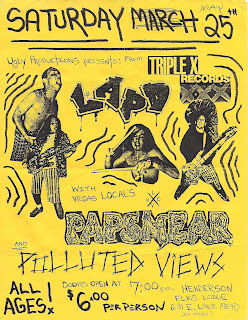 MAY
SATURDAY MARCH 25TH
Ugly Productions presents: From
TRIPLE X
RECORDS
XXX
LAPD
WITH
VEGAS LOCALS
PAPSMEAR
AND
PHLLUTED VIEWS
ALL AGES!
DOORS OPEN AT 7:00 p.m.
$6.00 PER PERSON
HENDERSON
ELKS LODGE
631 E. LAKE MEAD